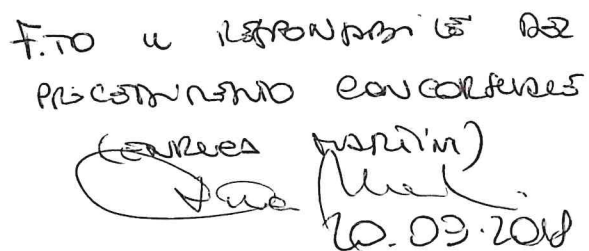 F.TO IL RESPONSABILE DEL
PROCEDIMENTO CONCORSUALE
MARTINI)
20.03.2018